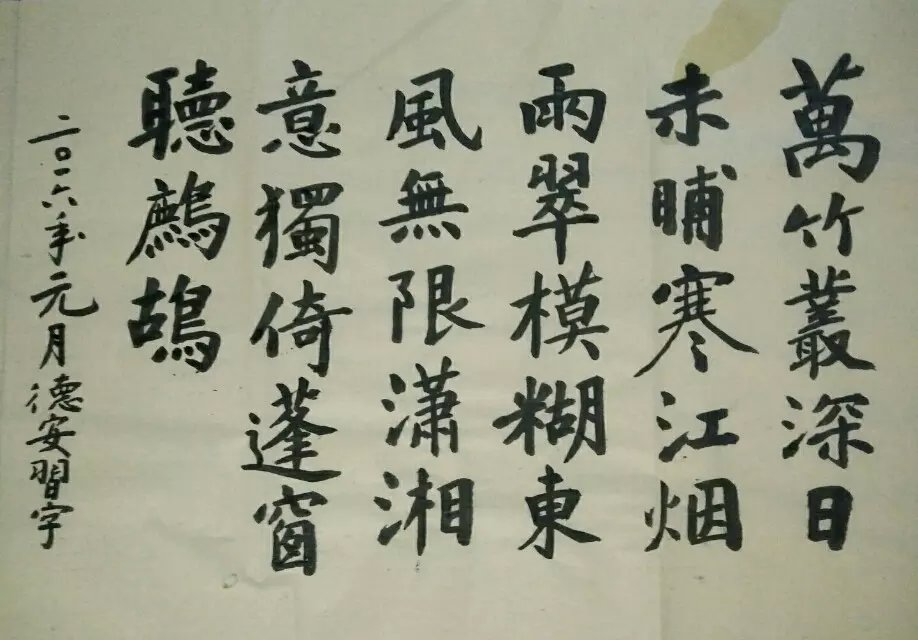 萬竹叢深日
未晡寒江烟
雨翠模糊東
風無限瀟湘
意獨倚蓬窗
聽鷓鴣
二〇一六年元月德安習字